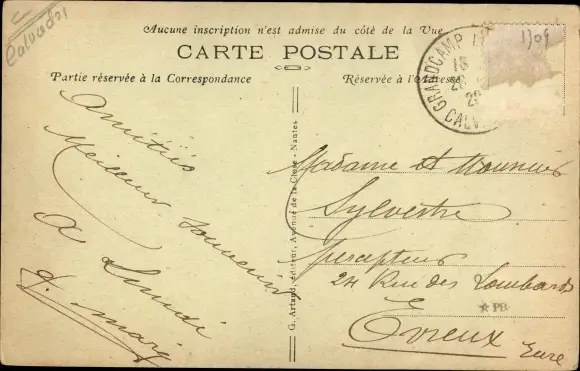 Calvados
1309
Aucune inscription n'est admise du côté de la Vue
CARTE POSTALE
Partie réservée à la Correspondance
Réservée à l'Adresse
GRANDCAMP L
CALV
Amitiés
Meilleur souvenir
A Lundi
G. Artaud, éditeur, Avenue de la Close - Nantes
Madame et Monsieur
Sylvestre
percepteur
24 Rue des Lombards
Evreux
Eure
PB